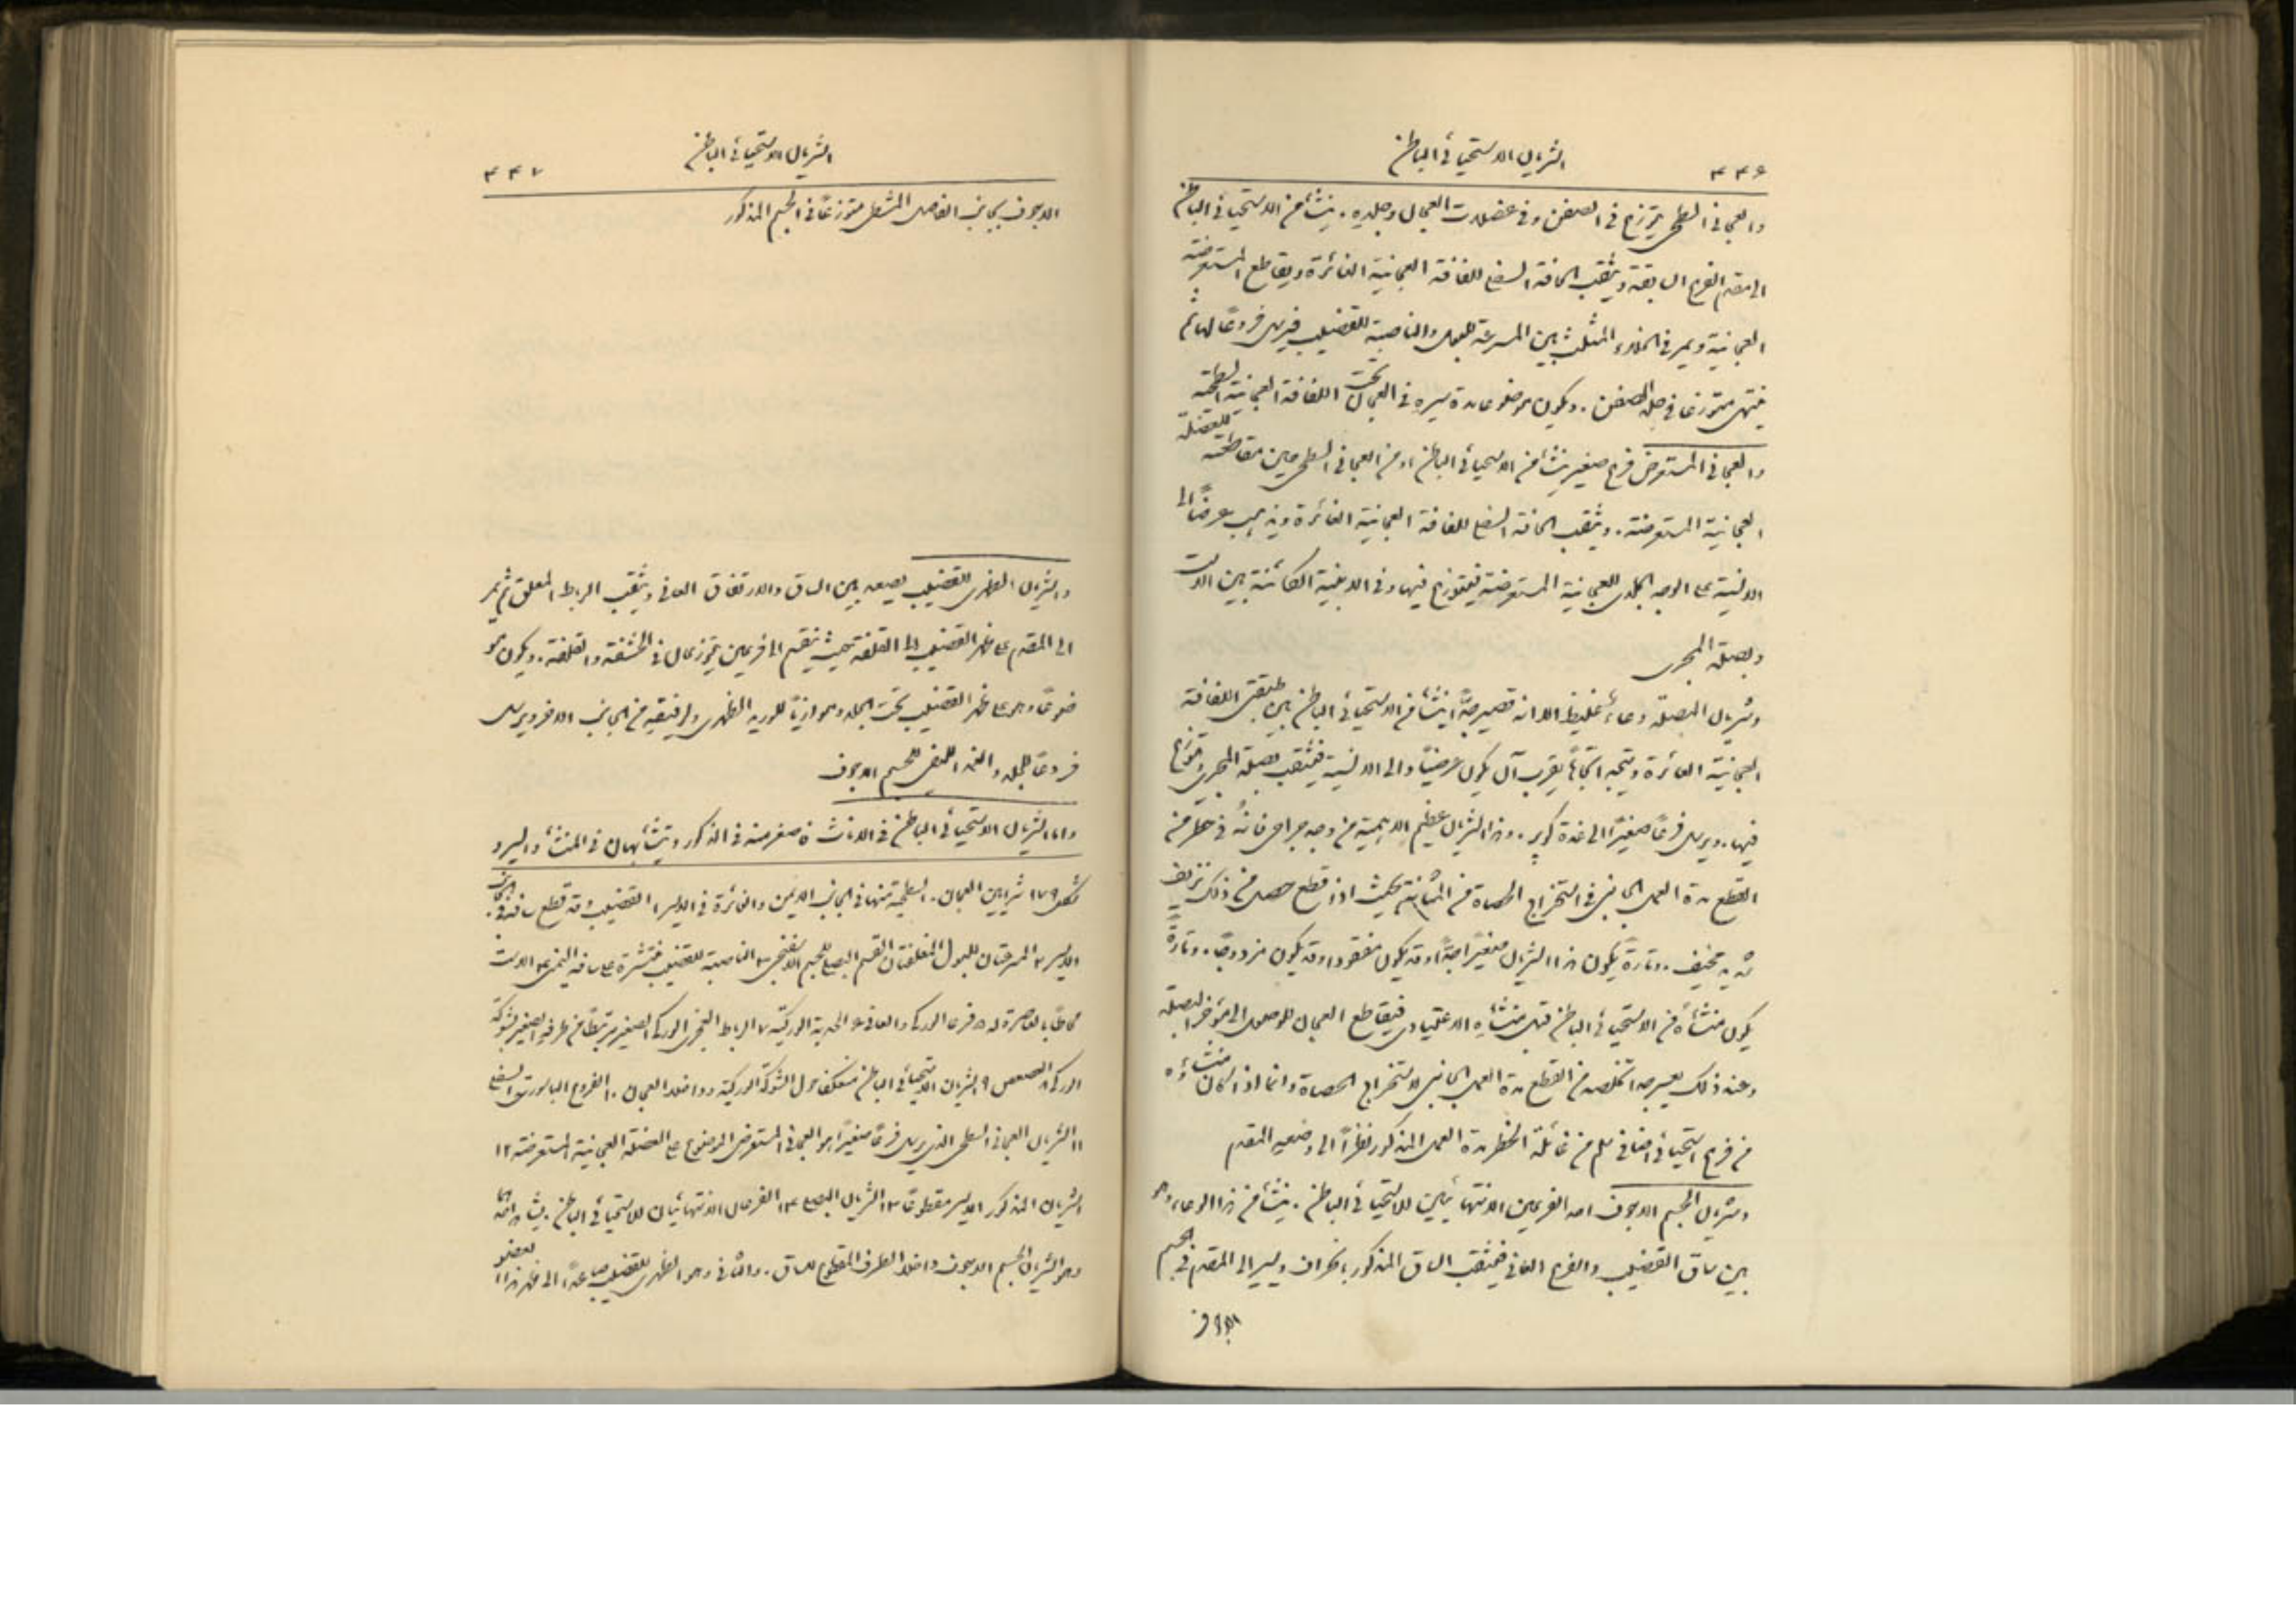 ٤٤٦
الشريان الاستحيائي الباطن
والعجاني السطحي يتوزع في الصفن وفي عضلات العجان وجلده. ينشأ من الاستحيائي الباطن
الى مقدم الفروع السابقة ويثقب الحافة السفلى للفافة العجانية الغائرة ويقاطع المستعرضة
العجانية ويمر في الخلاء المثلث بين المسرعة للبول والناصبة للقضيب فيرسل فروعًا لهما ثم
ينتهي متوزعا في جلد الصفن. ويكون موضوعا مدة سيره في العجان تحت اللفافة العجانية السطحية
والعجاني المستعرض فرع صغير ينشأ من الاستحيائي الباطن او من العجاني السطحي حين مقاطعته للعضلة
العجانية المستعرضة. ويثقب الحافة السفلى للفافة العجانية الغائرة ويذهب عرضًا الى
الانسية على الوجه الجلدي للعجانية المستعرضة فيتوزع فيها وفي الابنية الكائنة بين الاست
وبصلة المجرى
وشريان البصلة وعاء غليظ الا انه قصير جدًّا ينشأ من الاستحيائي الباطن بين طبقتي اللفافة
العجانية الغائرة ويتجه اتجاهًا يقرب ان يكون عرضيًّا والى الانسية فيثقب بصلة المجرى ويتوزع
فيها. ويرسل فرعًا صغيرًا الى غدة كوبر. وهذا الشريان عظيم الاهمية من وجه جراحي فانه في خطر من
القطع مدة العمل الجانبي في استخراج الحصاة من المثانة بحيث اذا قطع حصل من ذلك نزيف
شديد مخيف. وتارةً يكون هذا الشريان صغيرًا جدًّا وقد يكون مفقودا وقد يكون مزدوجًا. وتارةً
يكون منشأه من الاستحيائي الباطن قبل منشأه الاعتيادي فيقاطع العجان للوصول الى مؤخر البصلة
وعند ذلك يعسر جدا تخلصه من القطع مدة العمل الجانبي لاستخراج الحصاة واما اذا كان منشاؤه
من فرع استحيائي اضافي سلم من غائلة الخطر مدة العمل المذكور نظرًا الى وضعه المقدم
وشريان الجسم الاجوف احد الفرعين الانتهائيين للاستحيائي الباطن. ينشأ من هذا الوعاء وهو
بين ساق القضيب والفرع العاني فيثقب الساق المذكور بانحراف ويسير الى المقدم في الجسم
الاجوف
الشريان الاستحيائي الباطن
٤٤٧
الاجوف بجانب الفاصل المشطي متوزعًا في الجسم المذكور
والشريان الظهري للقضيب يصعد بين الساق والارتفاق العاني ويثقب الرباط المعلق ثم يمر
الى المقدم على ظهر القضيب الى القلفة حيث ينقسم الى فرعين يتوزعان في الحشفة والقلفة. ويكون مو
ضوعًا وهو على ظهر القضيب تحت الجلد وموازيًا للوريد الظهري ولرفيقه من الجانب الاخر ويرسل
فروعًا للجلد والغمد الليفي للجسم الاجوف
واما الشريان الاستحيائي الباطن في الاناث فاصغر منه في الذكور ويتشابهان في المنشأ والسير و
شكل ١٧٩ شرايين العجان. السطحية منها في الجانب الايمن والغائرة في الايسر ١ القضيب وقد قطع ساقه في الجانب
الايسر ٢ المسرعتان للبول المغلفتان القسم البصلي للجسم الاسفنجي ٣ الناصبة للقضيب منتشرة على ساقه اليمنى ٤ الاست
محاطًا بالعاصرة له ٥ فرعا الورك والعاني ٦ الحدبة الوركية ٧ الرباط العجزي الوركي الصغير مرتبطًا من طرفه الصغير بشوكة
الورك ٨ العصعص ٩ الشريان الاستحيائي الباطن منعكفا حول الشوكة الوركية وداخلا العجان ١٠ الفروع الباسورية السفلى
١١ الشريان العجاني السطحي الذي يرسل فرعًا صغيرًا هو العجاني المستعرض الموضوع على العضلة العجانية المستعرضة ١٢
الشريان المذكور الايسر مقطوعًا ١٣ الشريان البصلي ١٤ الفرعان الانتهائيان للاستحيائي الباطن يشاهد احدهما
وهو الشريان للجسم الاجوف داخلا الطرف المقطوع للساق. والثاني وهو الظهري للقضيب صاعدًا الى ظهر هذا العضو